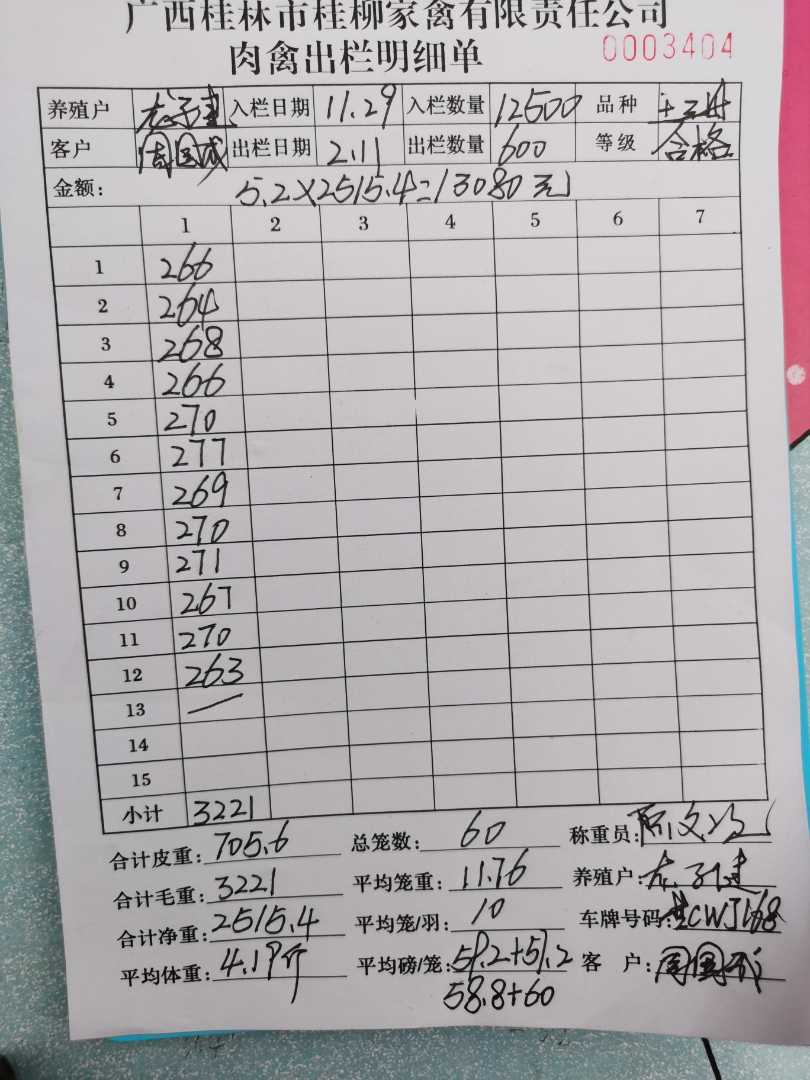 广西桂林市桂柳家禽有限责任公司
肉禽出栏明细单 0003404
养殖户 入栏日期 11.29 入栏数量 12500 品种
客户 周国成 出栏日期 2.11 出栏数量 600 等级 合格
金额: 5.2×2515.4=13080元
1 2 3 4 5 6 7
1 266
2 264
3 268
4 266
5 270
6 277
7 269
8 270
9 271
10 267
11 270
12 263
13 —
14
15
小计 3221
合计皮重: 705.6 总笼数: 60 称重员:
合计毛重: 3221 平均笼重: 11.76 养殖户:
合计净重: 2515.4 平均笼/羽: 10 车牌号码: CWJ168
平均体重: 4.19斤 平均磅/笼: 59.2+57.2 客户:
58.8+60